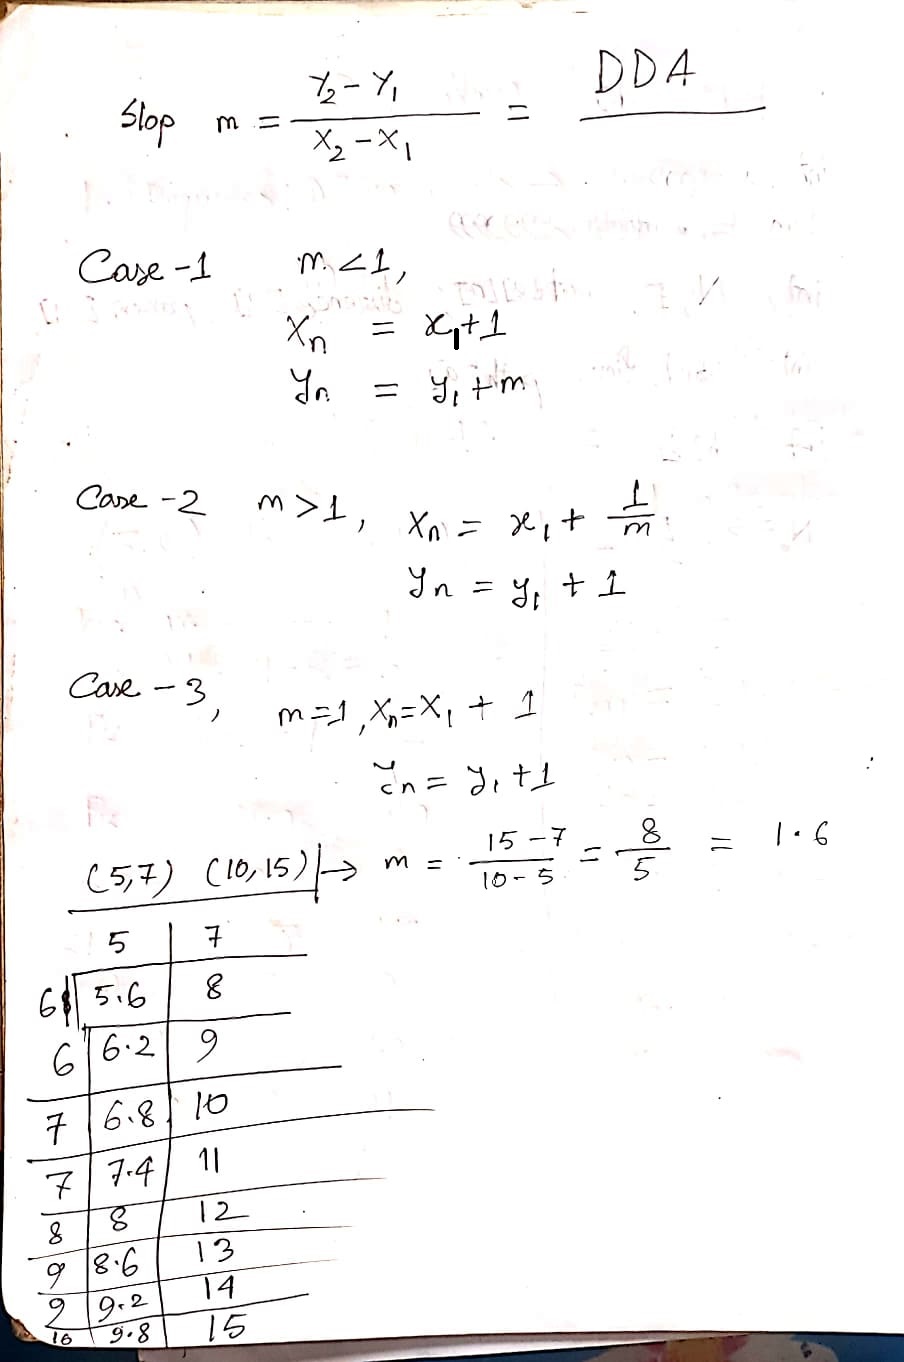 DDA
Slop m = Y₂ - Y₁ / X₂ - X₁ =
Case -1 m < 1,
Xn = x₁ + 1
Yn = y₁ + m
Case -2 m > 1, Xn = x₁ + 1/m
Yn = y₁ + 1
Case - 3, m = 1, Xn = X₁ + 1
Yn = y₁ + 1
(5,7) (10,15) → m = 15 - 7 / 10 - 5 = 8/5 = 1.6
5 | 7
6 | 5.6 | 8
6 | 6.2 | 9
7 | 6.8 | 10
7 | 7.4 | 11
8 | 8 | 12
9 | 8.6 | 13
9 | 9.2 | 14
10 | 9.8 | 15